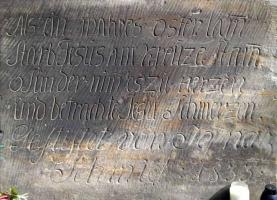 Als ein wahres osterlam
Starb Jesus am Kreuze Stam
o Sünder nim es zu Herzen
Und betrachte Jesu Schmerzen
Gestiftet von